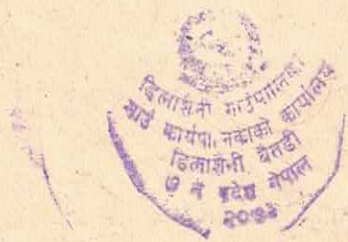 डिलाशैनी गाउँपालिका
गाउँ कार्यपालिकाको कार्यालय
डिलाशैनी, बैतडी
७ नं प्रदेश नेपाल
२०७३